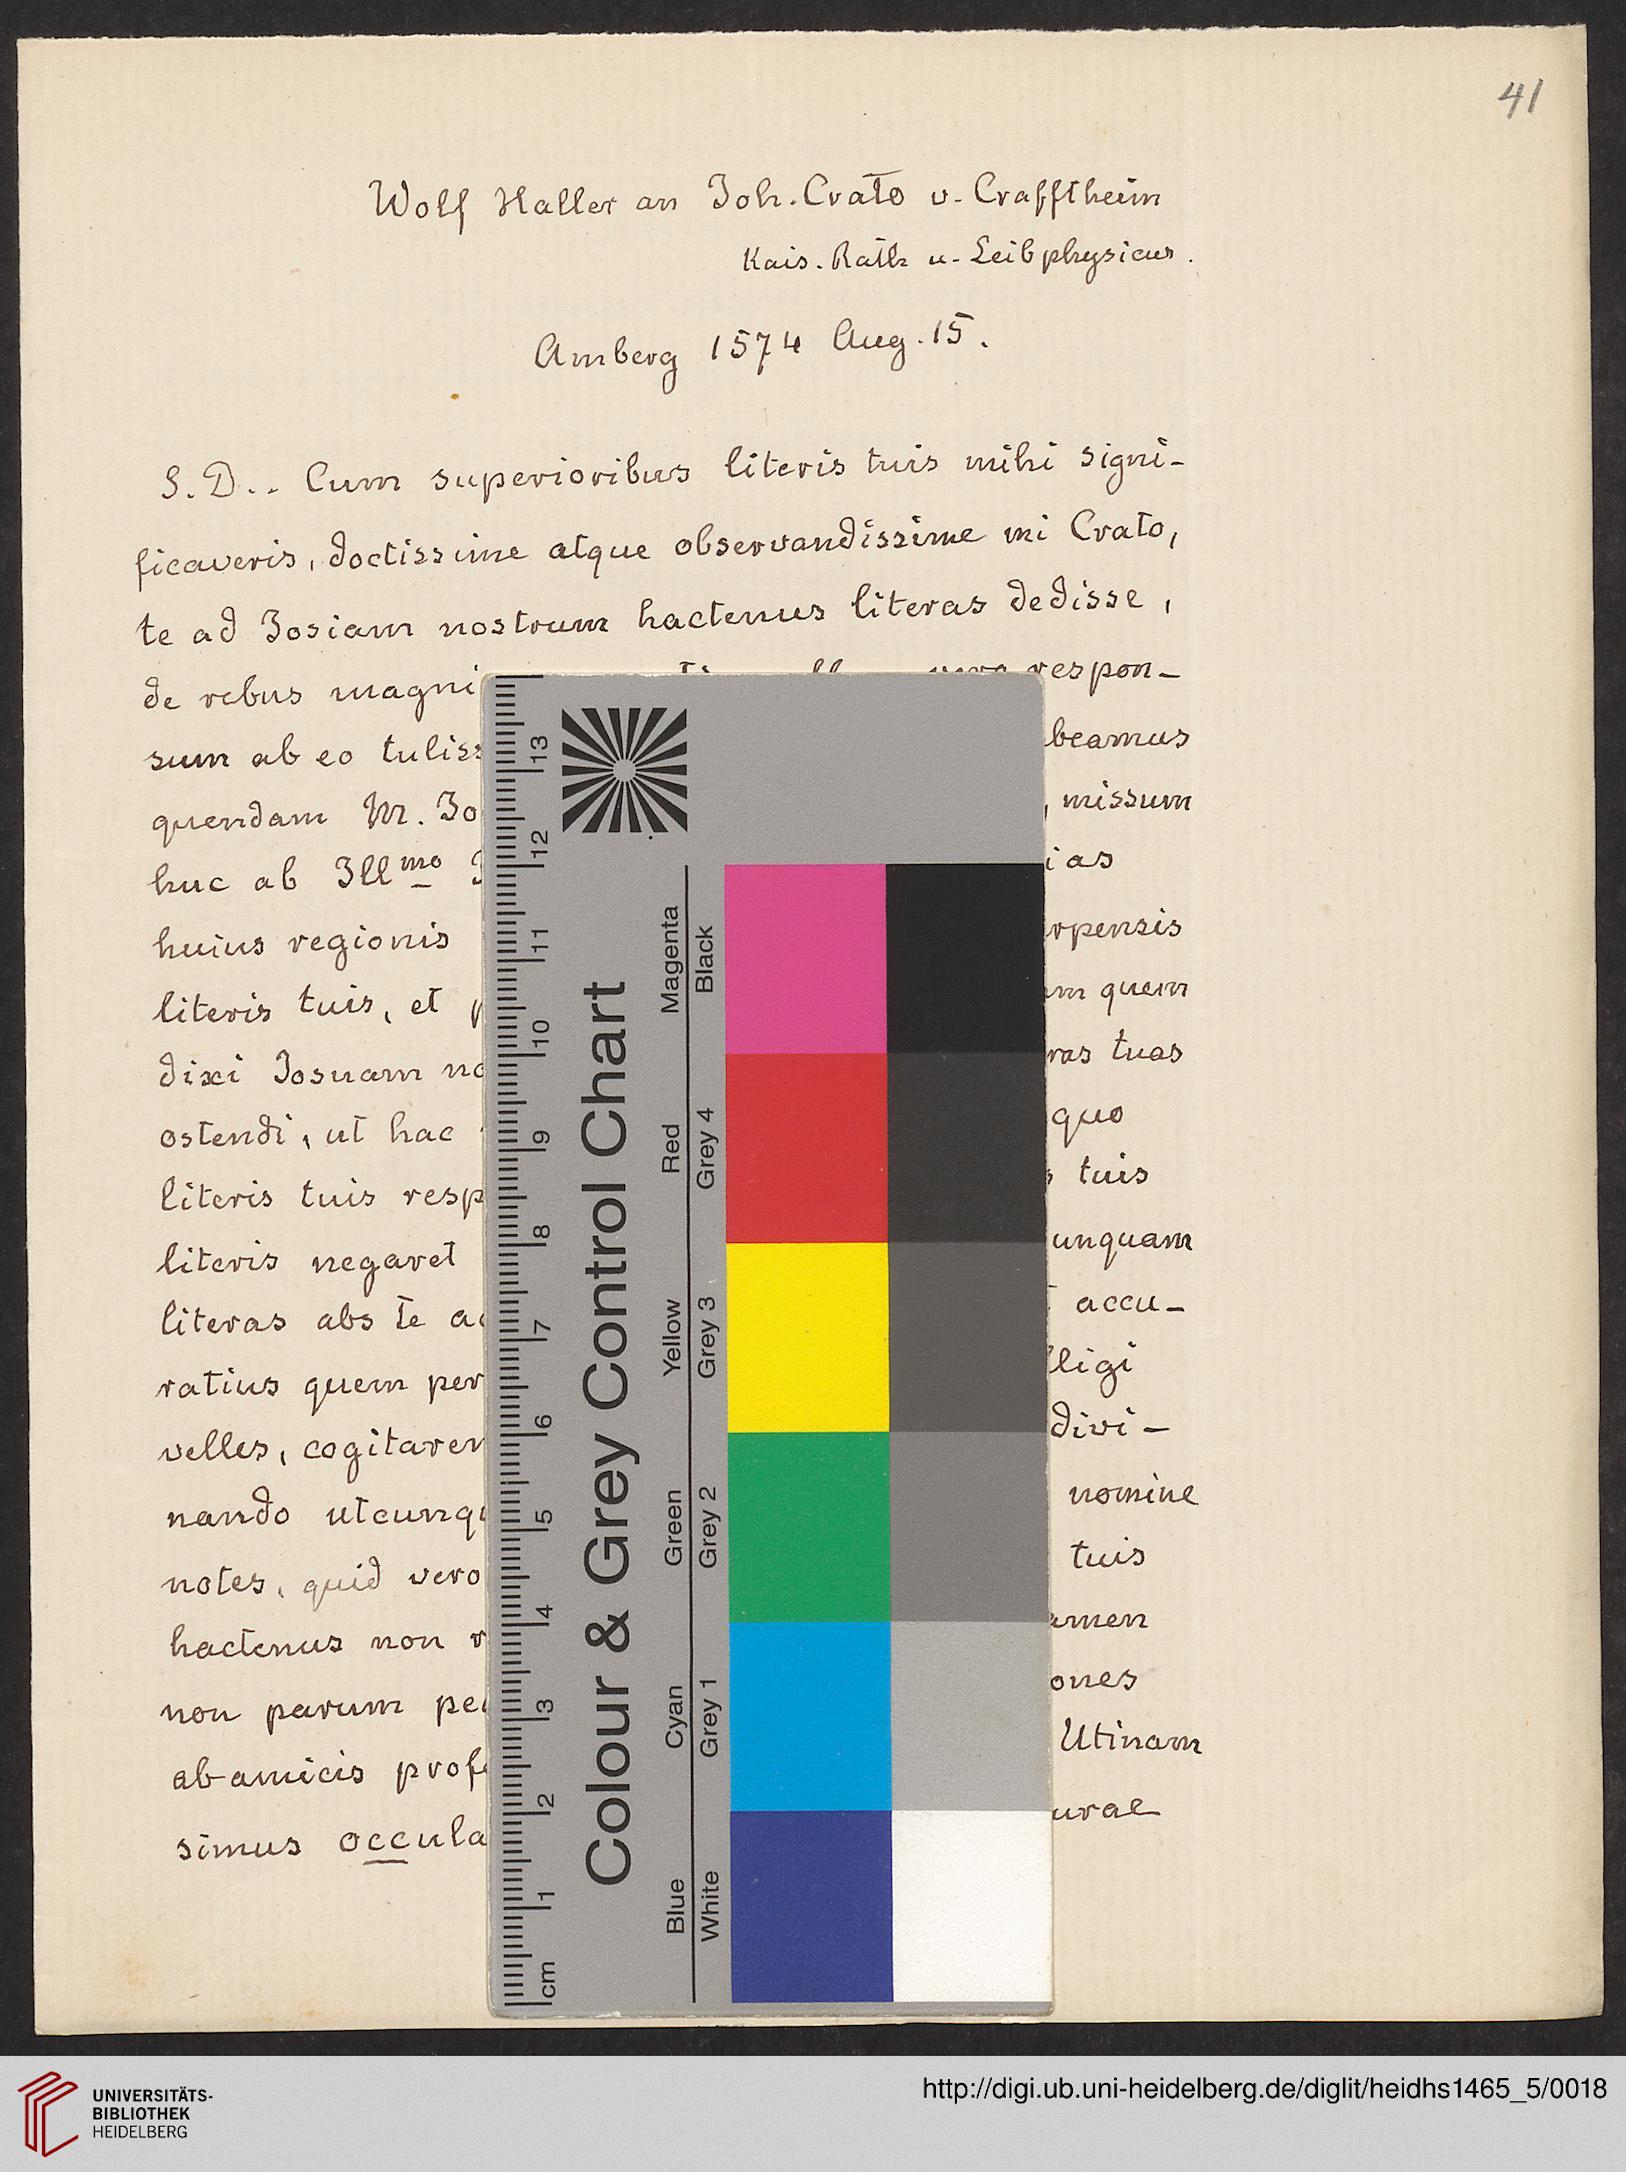 41
Wolf Haller an Joh. Crato v. Crafftheim
Kais. Rath u. Leibphysicus.
Amberg 1574 Aug. 15.
S. D.. Cum superioribus literis tuis mihi signi-
ficaveris, doctissime atque observandissime mi Crato,
te ad Josiam nostrum hactenus literas dedisse,
de rebus magni respon-
sum ab eo tuliss beamus
quendam M. Jo , missum
huc ab Illmo ias
huius regionis rpensis
literis tuis, et quem
dixi Josuam no ras tuas
ostendi, ut hac quo
literis tuis resp tuis
literis negaret unquam
literas abs te accu-
ratius quem per ligi
velles, cogitarem divi-
nando utcunqu nomine
notes, quid vero tuis
hactenus non amen
non parum per ones
ab amicis prof Utinam
simus occula urae
Colour & Grey Control Chart
Magenta
Black
Red
Grey 4
Yellow
Grey 3
Green
Grey 2
Cyan
Grey 1
Blue
White
13
12
11
10
9
8
7
6
5
4
3
2
1
cm
UNIVERSITÄTS-
BIBLIOTHEK
HEIDELBERG
http://digi.ub.uni-heidelberg.de/diglit/heidhs1465_5/0018